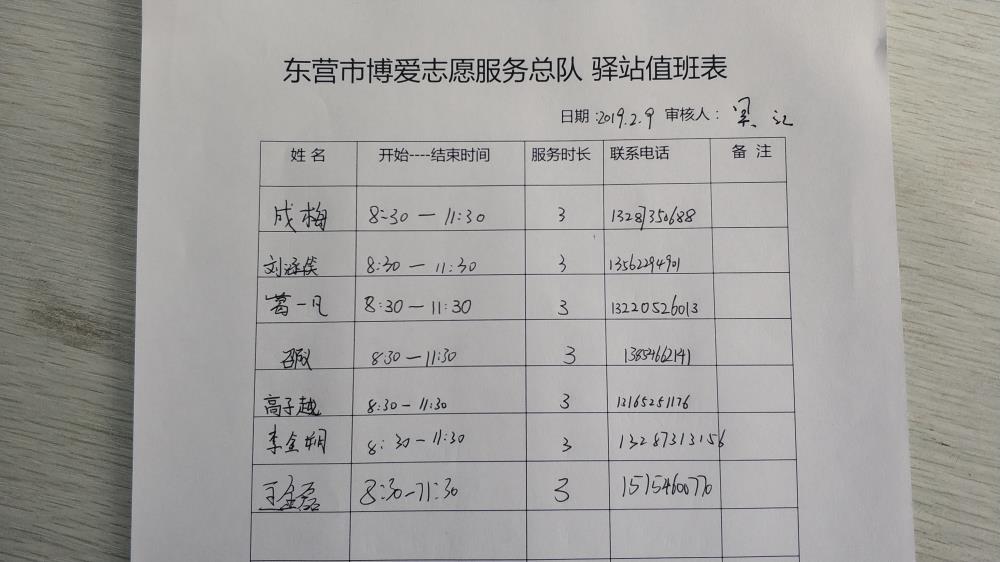 东营市博爱志愿服务总队 驿站值班表
日期:2019.2.9 审核人:
姓名 开始----结束时间 服务时长 联系电话 备 注
成梅 8:30 — 11:30 3 13287350688
8:30 — 11:30 3 13562294901
葛一凡 8:30 — 11:30 3 13220526013
8:30 — 11:30 3 13854662141
高子越 8:30 — 11:30 3 13165251176
李金朔 8:30 — 11:30 3 13287313156
王金磊 8:30 — 11:30 3 15154600770